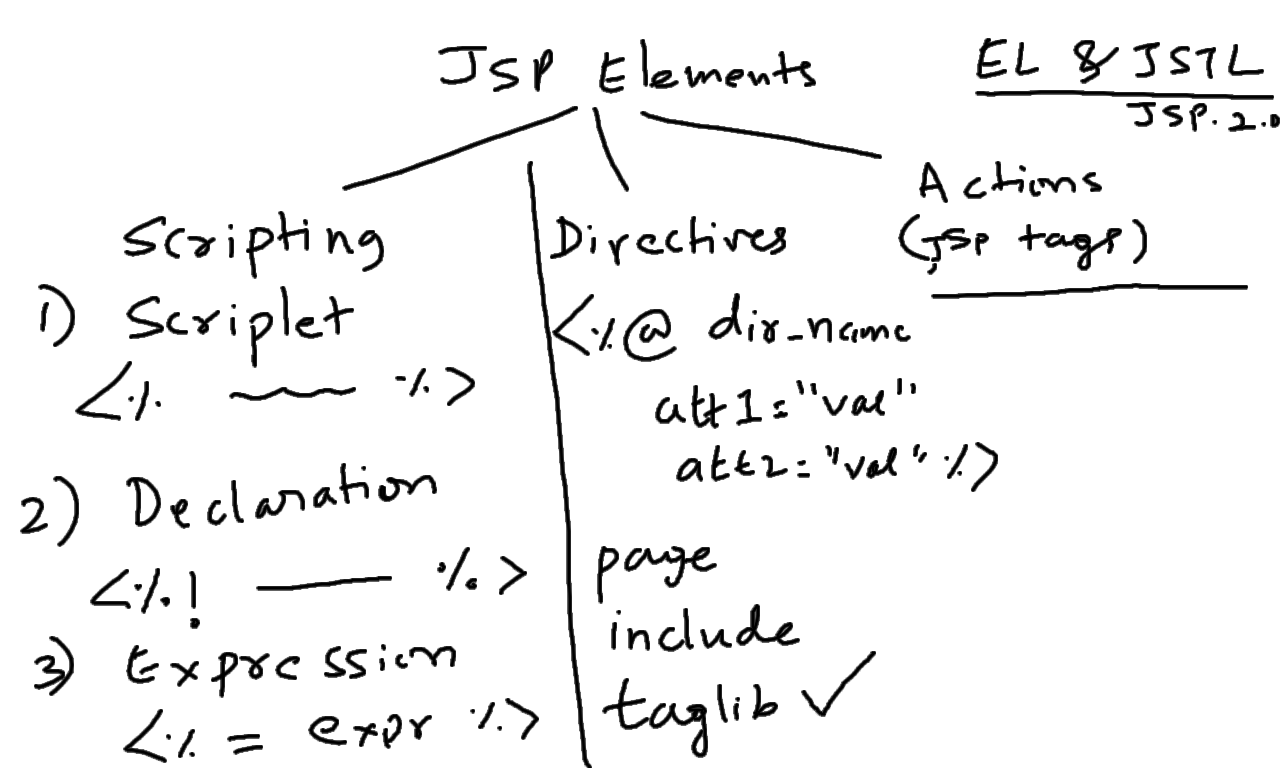 JSP Elements
EL & JSTL
JSP. 2.0
Scripting
1) Scriplet
<% ~~~ %>
2) Declaration
<%! — %>
3) Expression
<% = expr %>
Directives
<%@ dir_name
att1="val"
att2="val" %>
page
include
taglib ✓
Actions
(JSP tags)